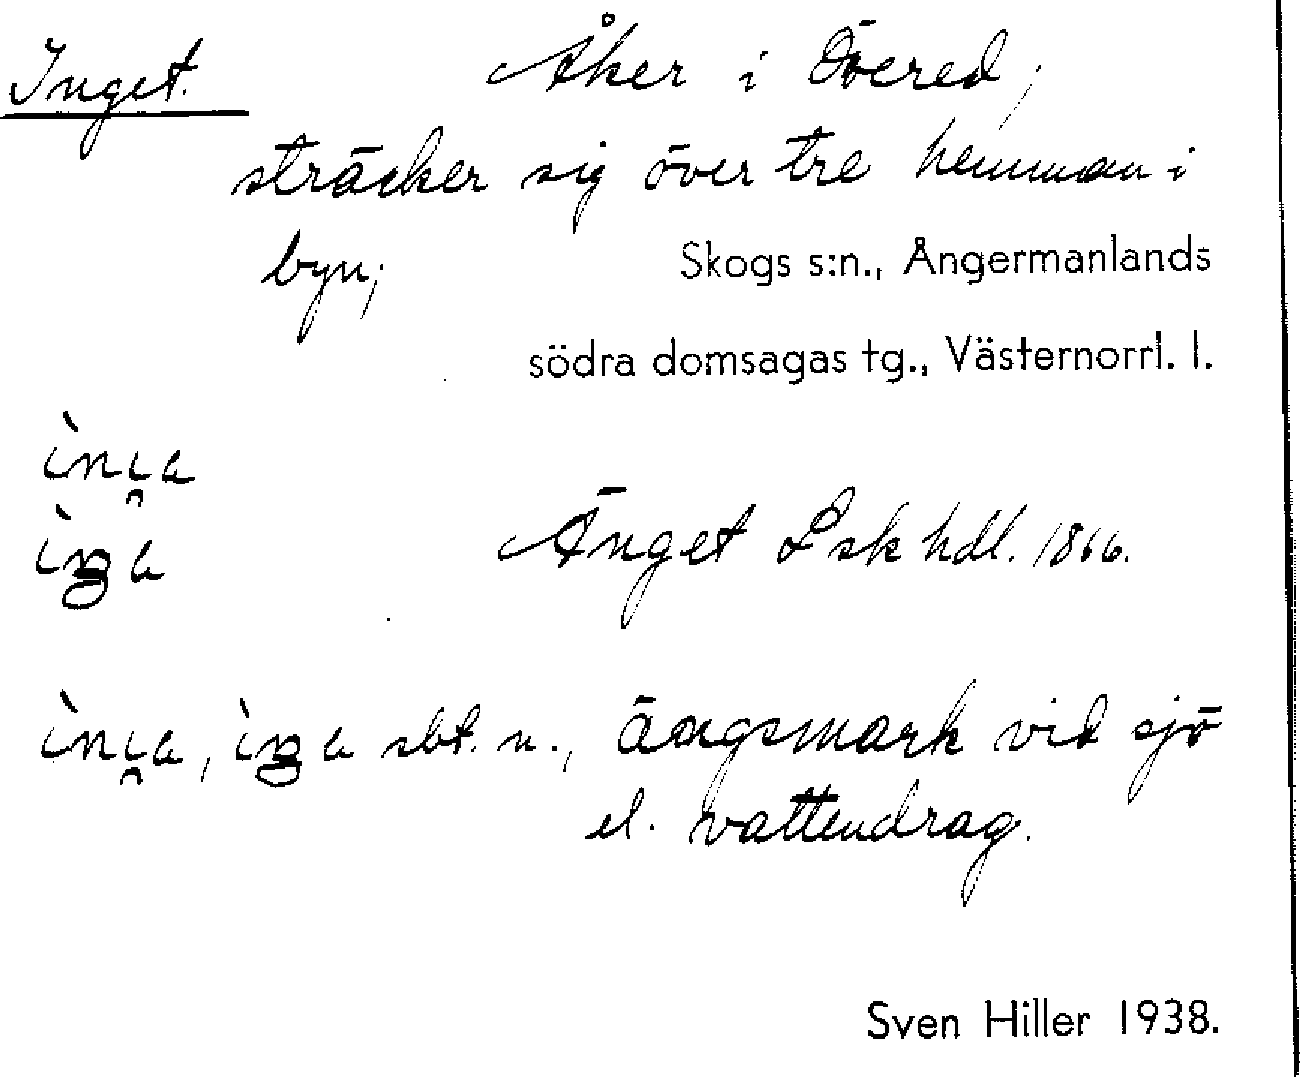 Inget. Åker i Övered,
sträcker sig över tre hemman i
byn; Skogs s:n., Ångermanlands
södra domsagas tg., Västernorrl. l.
Änget Lskhdl. 1866.
sbt. n., ängsmark vid sjö
el. vattendrag.
Sven Hiller 1938.